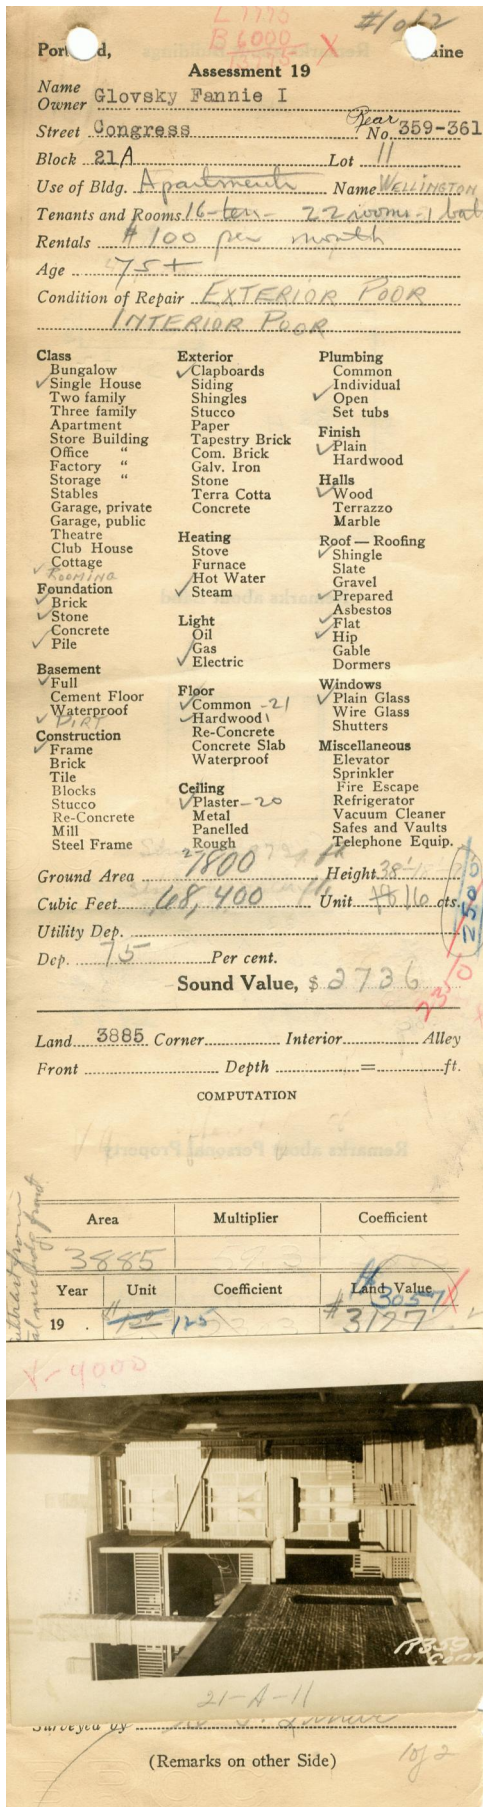 L 7775
B 6000
13775 X
#1 of 2
Port    d,    aine
Assessment 19
Name
Owner Glovsky Fannie I
Street Congress Rear No. 359-361
Block 21A Lot 11
Use of Bldg. Apartments Name WELLINGTON
Tenants and Rooms 16-ten- 22 rooms-1 bat
Rentals $100 per month
Age 75+
Condition of Repair EXTERIOR POOR
INTERIOR POOR
Class
Bungalow
✓ Single House
Two family
Three family
Apartment
Store Building
Office "
Factory "
Storage "
Stables
Garage, private
Garage, public
Theatre
Club House
Cottage
✓ ROOMING
Foundation
✓ Brick
✓ Stone
Concrete
✓ Pile
Basement
✓ Full
Cement Floor
Waterproof
✓ DIRT
Construction
✓ Frame
Brick
Tile
Blocks
Stucco
Re-Concrete
Mill
Steel Frame
Exterior
✓ Clapboards
Siding
Shingles
Stucco
Paper
Tapestry Brick
Com. Brick
Galv. Iron
Stone
Terra Cotta
Concrete
Heating
Stove
Furnace
Hot Water
✓ Steam
Light
Oil
Gas
✓ Electric
Floor
✓ Common -21
✓ Hardwood 1
Re-Concrete
Concrete Slab
Waterproof
Ceiling
✓ Plaster-20
Metal
Panelled
Rough
Plumbing
Common
Individual
✓ Open
Set tubs
Finish
✓ Plain
Hardwood
Halls
✓ Wood
Terrazzo
Marble
Roof — Roofing
✓ Shingle
Slate
Gravel
✓ Prepared
Asbestos
✓ Flat
✓ Hip
Gable
Dormers
Windows
✓ Plain Glass
Wire Glass
Shutters
Miscellaneous
Elevator
Sprinkler
Fire Escape
Refrigerator
Vacuum Cleaner
Safes and Vaults
Telephone Equip.
Ground Area 1800 Height 38'
Cubic Feet 68,400 Unit 18 16 cts.
2500
Utility Dep.
Dep. 75 Per cent.
Sound Value, $ 2736
2350
Land 3885 Corner Interior Alley
Front Depth = ft.
COMPUTATION
Area Multiplier Coefficient
3885
Year Unit Coefficient Land Value
$3057 X
19 . 125 $3127
X-4000
R359
Cong
21-A-11
Surveyed by
(Remarks on other Side)
1 of 2